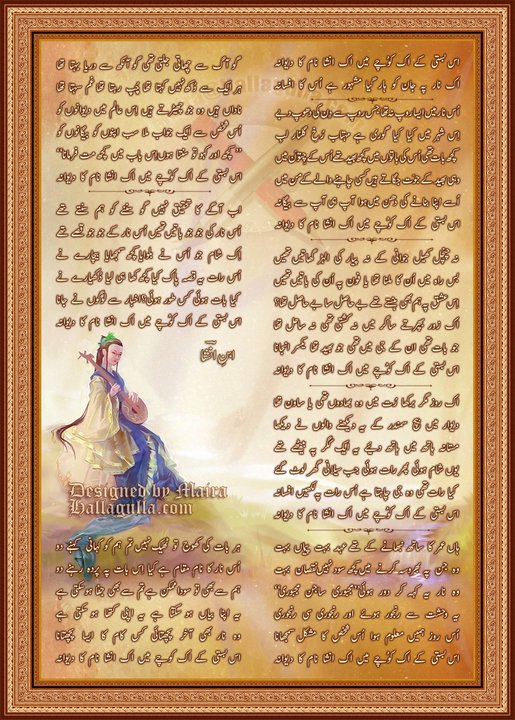 اس بستی کے اک کوچے میں اک انشا نام کا دیوانہ
اک نار پہ جان کو ہار گیا مشہور ہے اس کا افسانہ
اس نار میں ایسا روپ نہ تھا جس روپ سے دن کی دھوپ دبے
اس شہر میں کیا کیا گوری ہے مہتاب رخ گلنار لب
کچھ بات تھی اس کی باتوں میں کچھ بھید تھے اس کے چتون میں
وہی بھید کہ جوت جگاتے ہیں کسی چاہنے والے کے من میں
اسے اپنا بنانے کی دھن میں ہوا آپ ہی آپ سے بیگانہ
اس بستی کے اک کوچے میں اک انشا نام کا دیوانہ
نہ چنچل کھیل جوانی کے نہ پیار کی الھڑ گھاتیں تھیں
بس راہ میں ان کا ملنا تھا یا فون پہ ان کی باتیں تھیں
اس عشق پہ ہم بھی ہنستے تھے بے حاصل سا بے حاصل تھا؟
اک زور بپھرتے ساگر میں نہ کشتی تھی نہ ساحل تھا
جو بات تھی ان کے جی میں تھی جو بھید تھا یکسر انجانا
اس بستی کے اک کوچے میں اک انشا نام کا دیوانہ
اک روز مگر برکھا رت میں وہ بھادوں تھی یا ساون تھا
دیوار پہ بیچ سمندر کے یہ دیکھنے والوں نے دیکھا
مستانہ ہاتھ میں ہاتھ دیے یہ ایک کگر پہ بیٹھے تھے
یوں شام ہوئی پھر رات ہوئی جب سیلانی گھر لوٹ گئے
کیا رات تھی وہ جی چاہتا ہے اس رات پہ لکھیں افسانہ
اس بستی کے اک کوچے میں اک انشا نام کا دیوانہ
ہاں عمر کا ساتھ نبھانے کے تھے عہد بہت پیمان بہت
وہ جن پہ بھروسہ کرنے میں کچھ سود نہیں نقصان بہت
وہ نار یہ کہہ کر دور ہوئی "مجبوری ساجن مجبوری"
یہ وحشت سے رنجور ہوئے اور رنجوری سی رنجوری
اس روز ہمیں معلوم ہوا اس شخص کا مشکل سمجھانا
اس بستی کے اک کوچے میں اک انشا نام کا دیوانہ
گو آگ سے چھاتی جلتی تھی گو آنکھ سے دریا بہتا تھا
ہر ایک سے دکھ نہیں کہتا تھا چپ رہتا تھا غم سہتا تھا
ناداں ہیں وہ جو چھیڑتے ہیں اس عالم میں دیوانوں کو
اس شخص سے ایک جواب ملا سب اپنوں کو بیگانوں کو
"کچھ اور کہو تو سنتا ہوں اس باب میں کچھ مت فرمانا"
اس بستی کے اک کوچے میں اک انشا نام کا دیوانہ
اب آگے کا تحقیق نہیں گو سننے کو ہم سنتے تھے
اس نار کی جو جو باتیں تھیں اس نار کے جو جو قصے تھے
اک شام جو اس نے بلوایا کچھ سمجھایا بیچارے نے
اس رات یہ قصہ پاک کیا کچھ کھا ہی لیا دکھیارے نے
کیا بات ہوئی کس طور ہوئی؟ اخبار سے لوگوں نے جانا
اس بستی کے اک کوچے میں اک انشا نام کا دیوانہ
ابن انشا
Designed by Maira
Hallagulla.com
ہر بات کی کھوج تو ٹھیک نہیں تم ہم کو کہانی کہنے دو
اس نار کا نام مقام ہے کیا اس بات پہ پردہ رہنے دو
ہم سے بھی تو سودا ممکن ہے تم سے بھی جفا ہو سکتی ہے
یہ اپنا بیاں ہو سکتا ہے یہ اپنی کتھا ہو سکتی ہے
وہ نار بھی آخر پچھتائی کس کام کا ایسا پچھتانا
اس بستی کے اک کوچے میں اک انشا نام کا دیوانہ